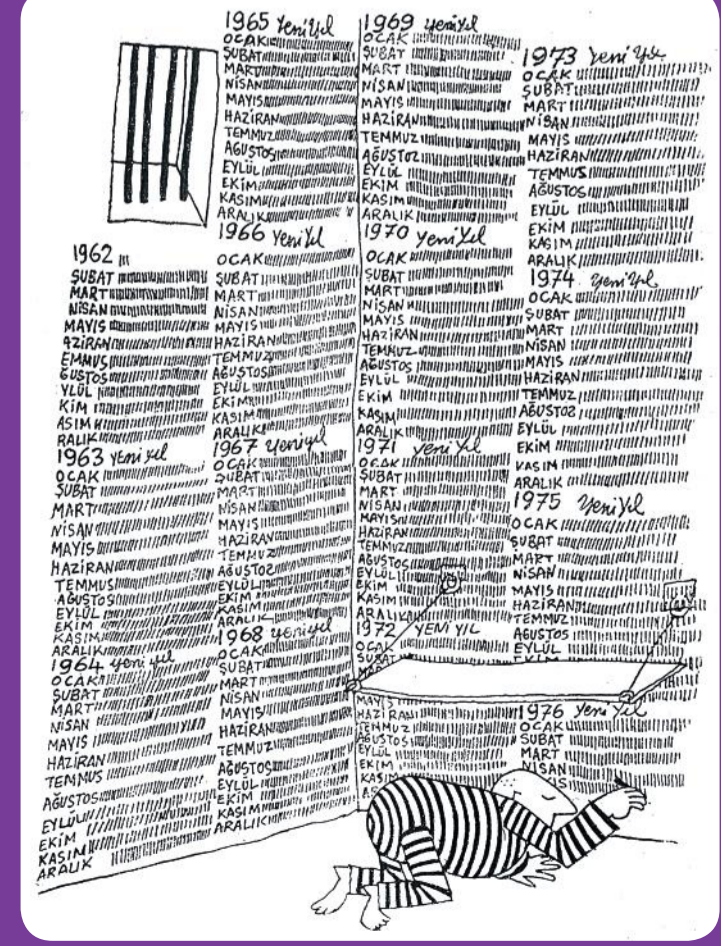 1962
ŞUBAT
MART
NİSAN
MAYIS
AZİRAN
EMMUS
GUSTOS
YLÜL
KİM
ASIM
RALIK
1963 yeni yıl
OCAK
ŞUBAT
MART
NİSAN
MAYIS
HAZİRAN
TEMMUS
AĞUSTOS
EYLÜL
EKİM
KASIM
ARALIK
1964 yeni yıl
OCAK
ŞUBAT
MART
NİSAN
MAYIS
HAZİRAN
TEMMUS
AĞUSTOS
EYLÜL
EKİM
KASIM
ARALIK
1965 Yeni Yıl
OCAK
ŞUBAT
MART
NİSAN
MAYIS
HAZİRAN
TEMMUZ
AĞUSTOS
EYLÜL
EKİM
KASIM
ARALIK
1966 Yeni Yıl
OCAK
ŞUBAT
MART
NİSAN
MAYIS
HAZİRAN
TEMMUZ
AĞUSTOS
EYLÜL
EKİM
KASIM
ARALIK
1967 Yeni yıl
OCAK
ŞUBAT
MART
NİSAN
MAYIS
HAZİRAN
TEMMUZ
AĞUSTOS
EYLÜL
EKİM
KASIM
ARALIK
1968 yeni yıl
OCAK
ŞUBAT
MART
NİSAN
MAYIS
HAZİRAN
TEMMUZ
AĞUSTOS
EYLÜL
EKİM
KASIM
ARALIK
1969 yeni yıl
OCAK
ŞUBAT
MART
NİSAN
MAYIS
HAZİRAN
TEMMUZ
AĞUSTOZ
EYLÜL
EKİM
KASIM
ARALIK
1970 yeni Yıl
OCAK
ŞUBAT
MART
NİSAN
MAYIS
HAZİRAN
TEMMUZ
AĞUSTOS
EYLÜL
EKİM
KASIM
ARALIK
1971 yeni Yıl
OCAK
ŞUBAT
MART
NİSAN
MAYIS
HAZİRAN
TEMMUZ
AĞUSTOS
EYLÜL
EKİM
KASIM
ARALIK
1972 YENİ YIL
OCAK
ŞUBAT
MAYIS
HAZİRAN
TEMMUZ
AĞUSTOS
EYLÜL
EKİM
KASIM
1973 yeni Yıl
OCAK
ŞUBAT
MART
NİSAN
MAYIS
HAZİRAN
TEMMUS
AĞUSTOS
EYLÜL
EKİM
KASIM
ARALIK
1974 Yeni Yıl
OCAK
ŞUBAT
MART
NİSAN
MAYIS
HAZİRAN
TEMMUZ
AĞUSTOS
EYLÜL
EKİM
KASIM
ARALIK
1975 Yeni Yıl
OCAK
ŞUBAT
MART
NİSAN
MAYIS
HAZİRAN
TEMMUZ
AGUSTOS
EYLÜL
1976 Yeni Yıl
OCAK
ŞUBAT
MART
NİSAN